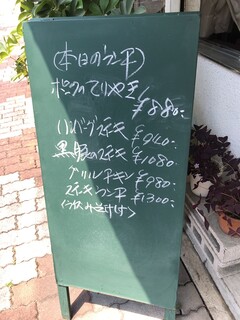 (本日のランチ)
ポークのてりやき
¥880-
ハンバーグステーキ ¥940-
黒豚のステーキ ¥1080-
グリルチキン ¥980-
ステーキランチ ¥1300-